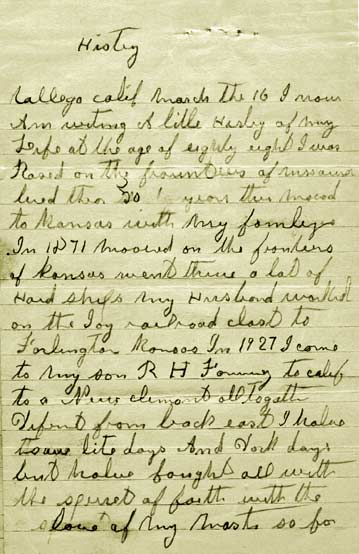 Histry
Vallego calif March the 16 I now
Am writing A little Histry of my
Life at the age of eighty eight I was
Rased on the frounters of missouri
lived ther 30 years then mooved
to Kansas with my familys
In 1871 mooved on the frontiers
of Kansas went threw a lot of
Hard ships my Husband worked
on the Joy railroad clost to
Farlington Kansas In 1927 I come
to my son R H to calif
to a New climent alltogather
Defrent from back east I have
lite days And Dark days
but have fought all with
the speret of faith with the
love of my so far